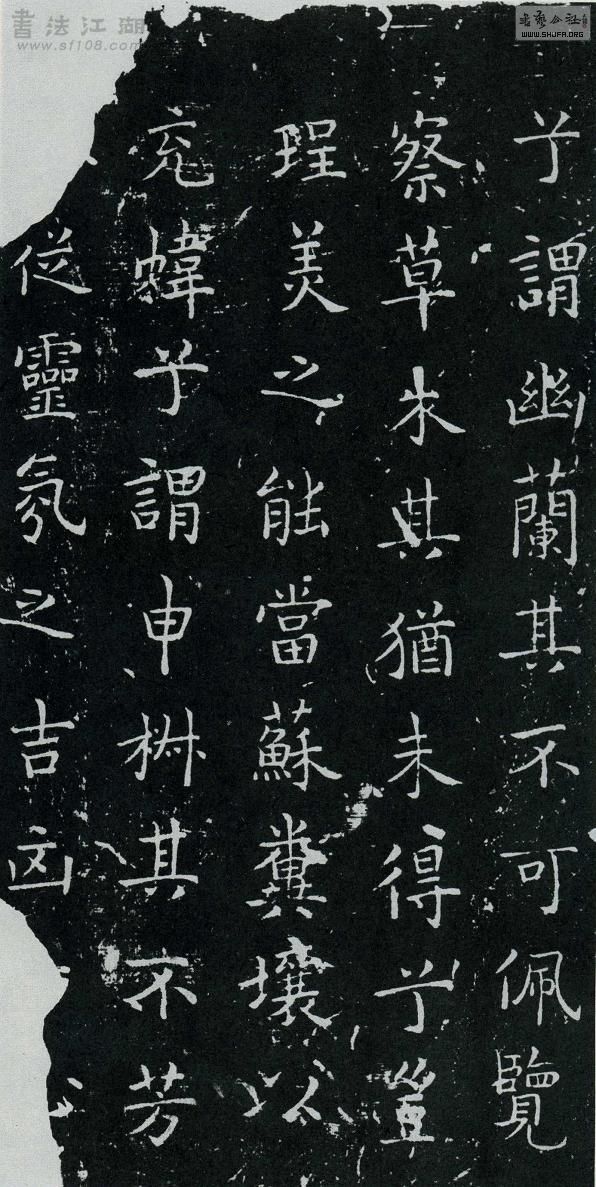 書法江湖
www.sf108.com
书艺公社
WWW.SHJFA.ORG
兮謂幽蘭其不可佩覽
察草木其猶未得兮豈
珵美之能當蘇糞壤以
充幃兮謂申椒其不芳
從靈氛之吉